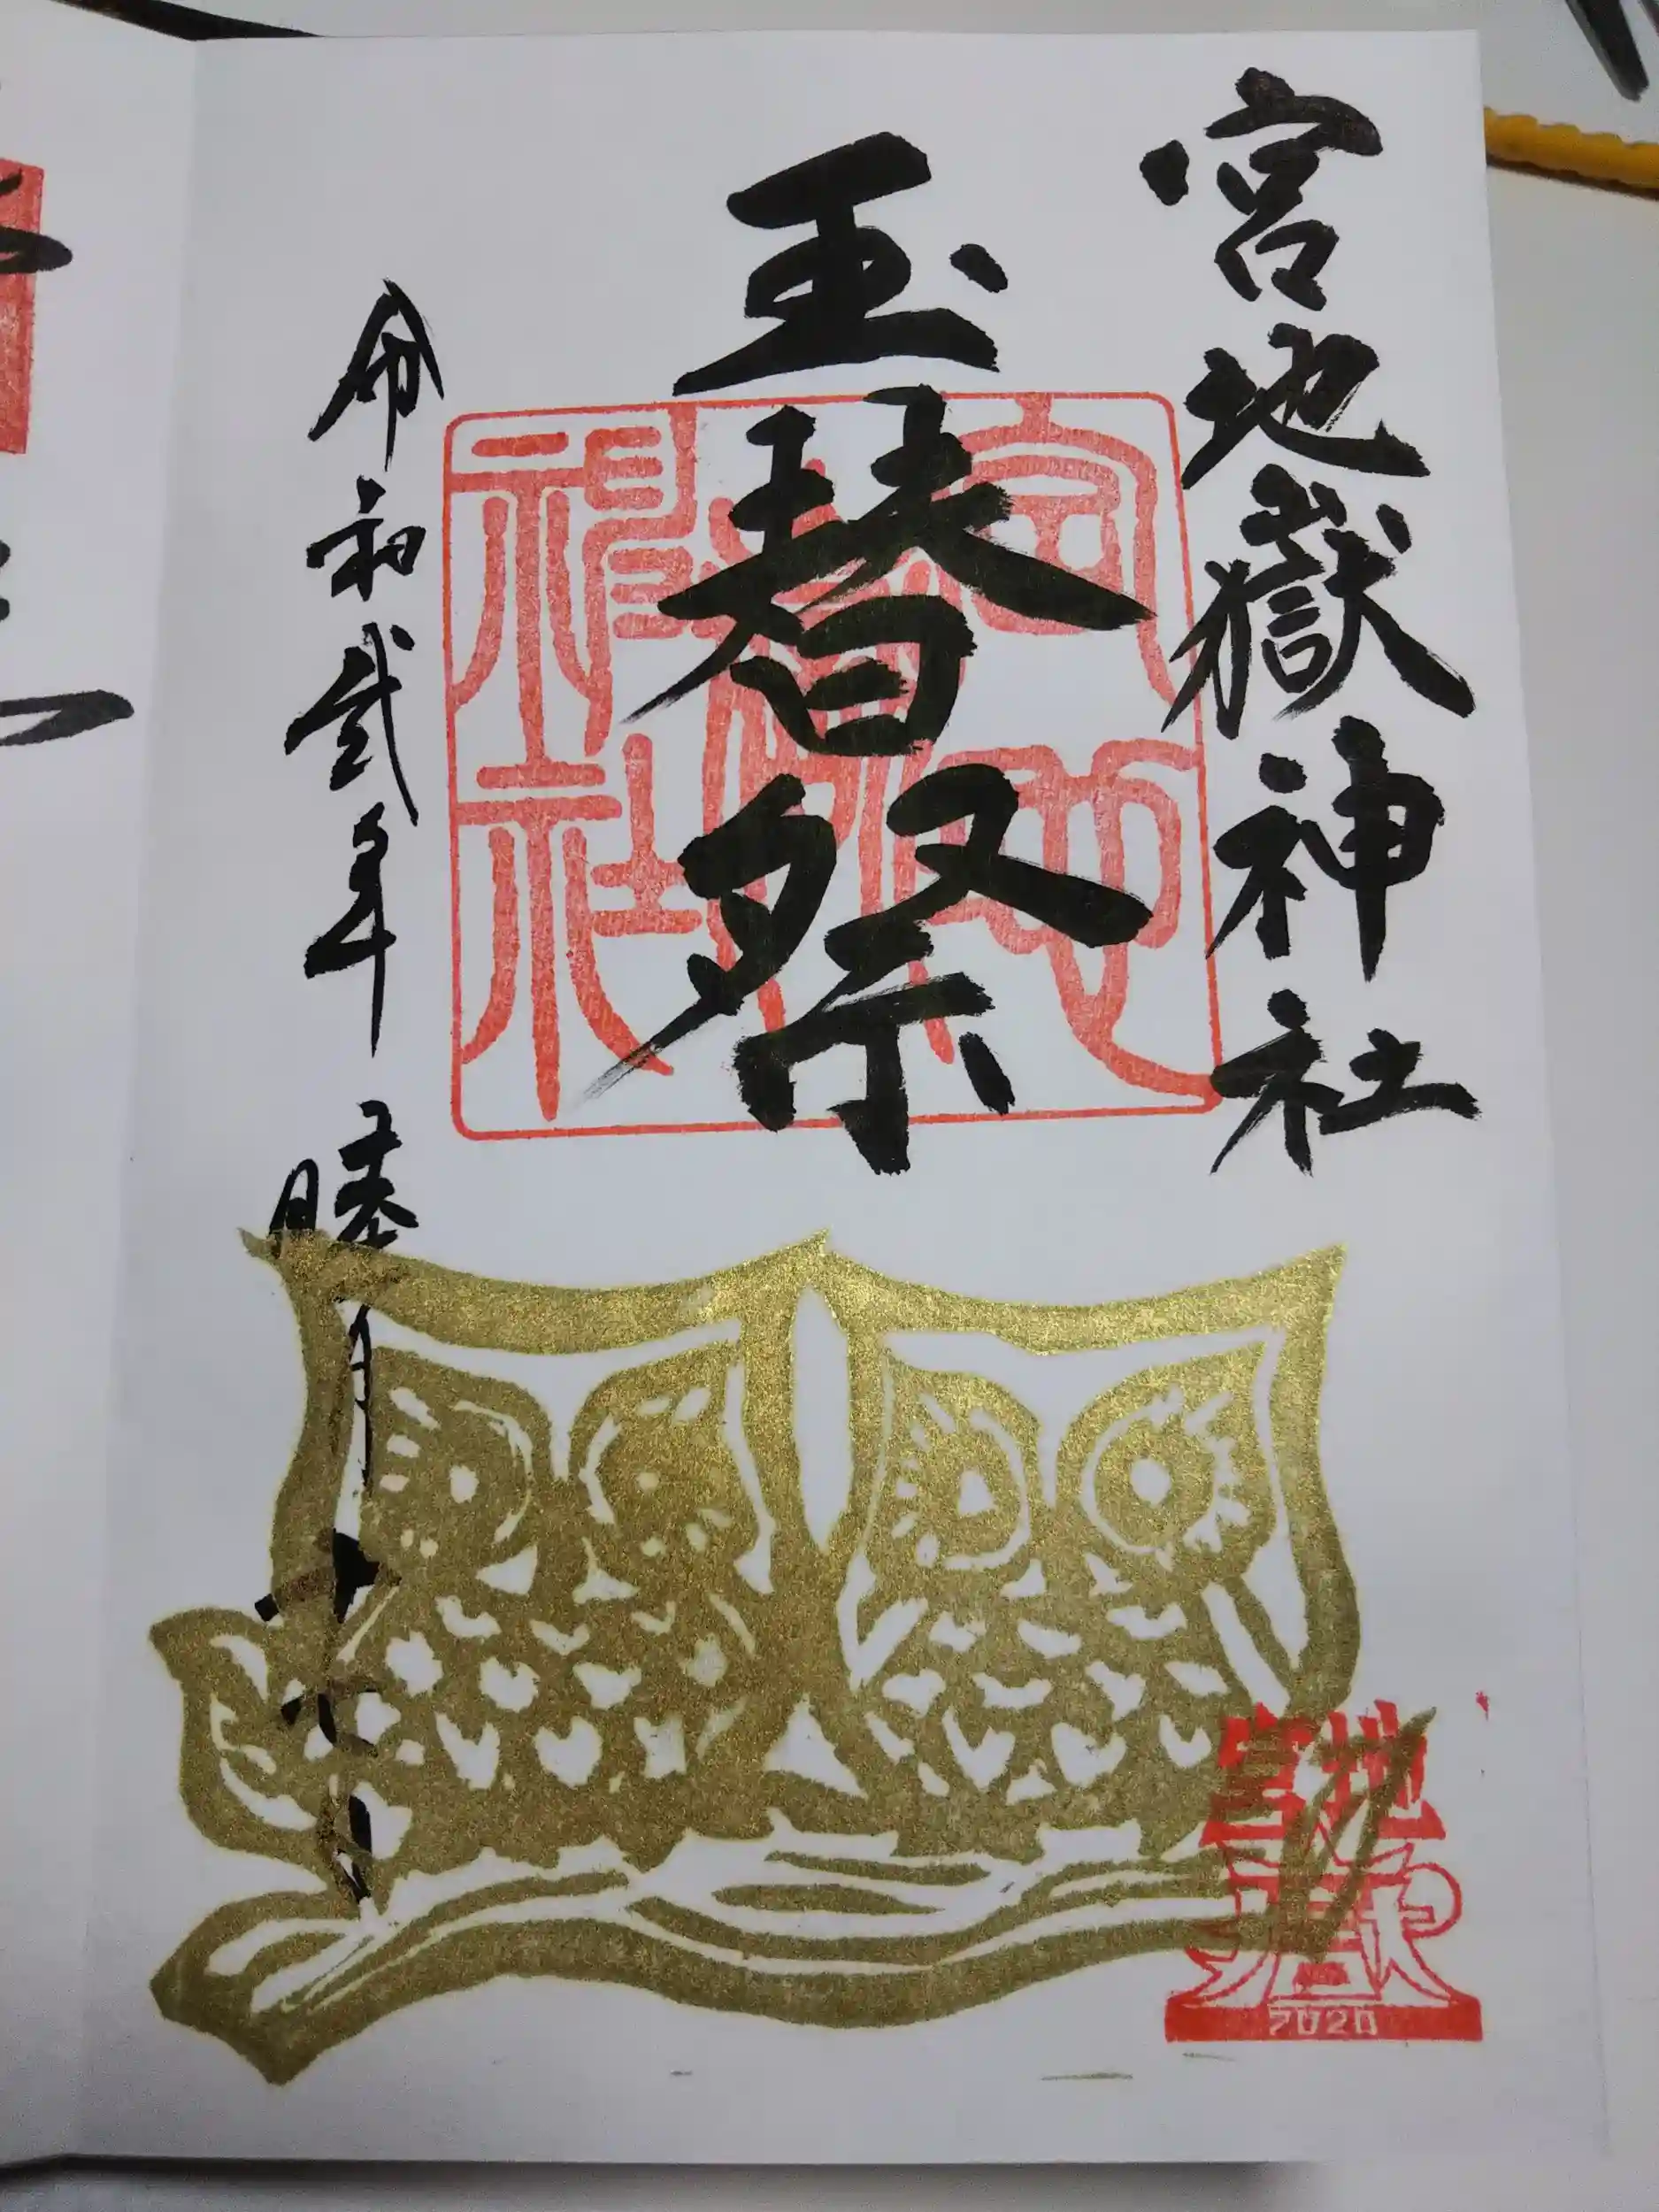 宮地嶽神社
玉替祭
宮地嶽神社
令和弐年 睦月 十七日
宮地嶽
2020